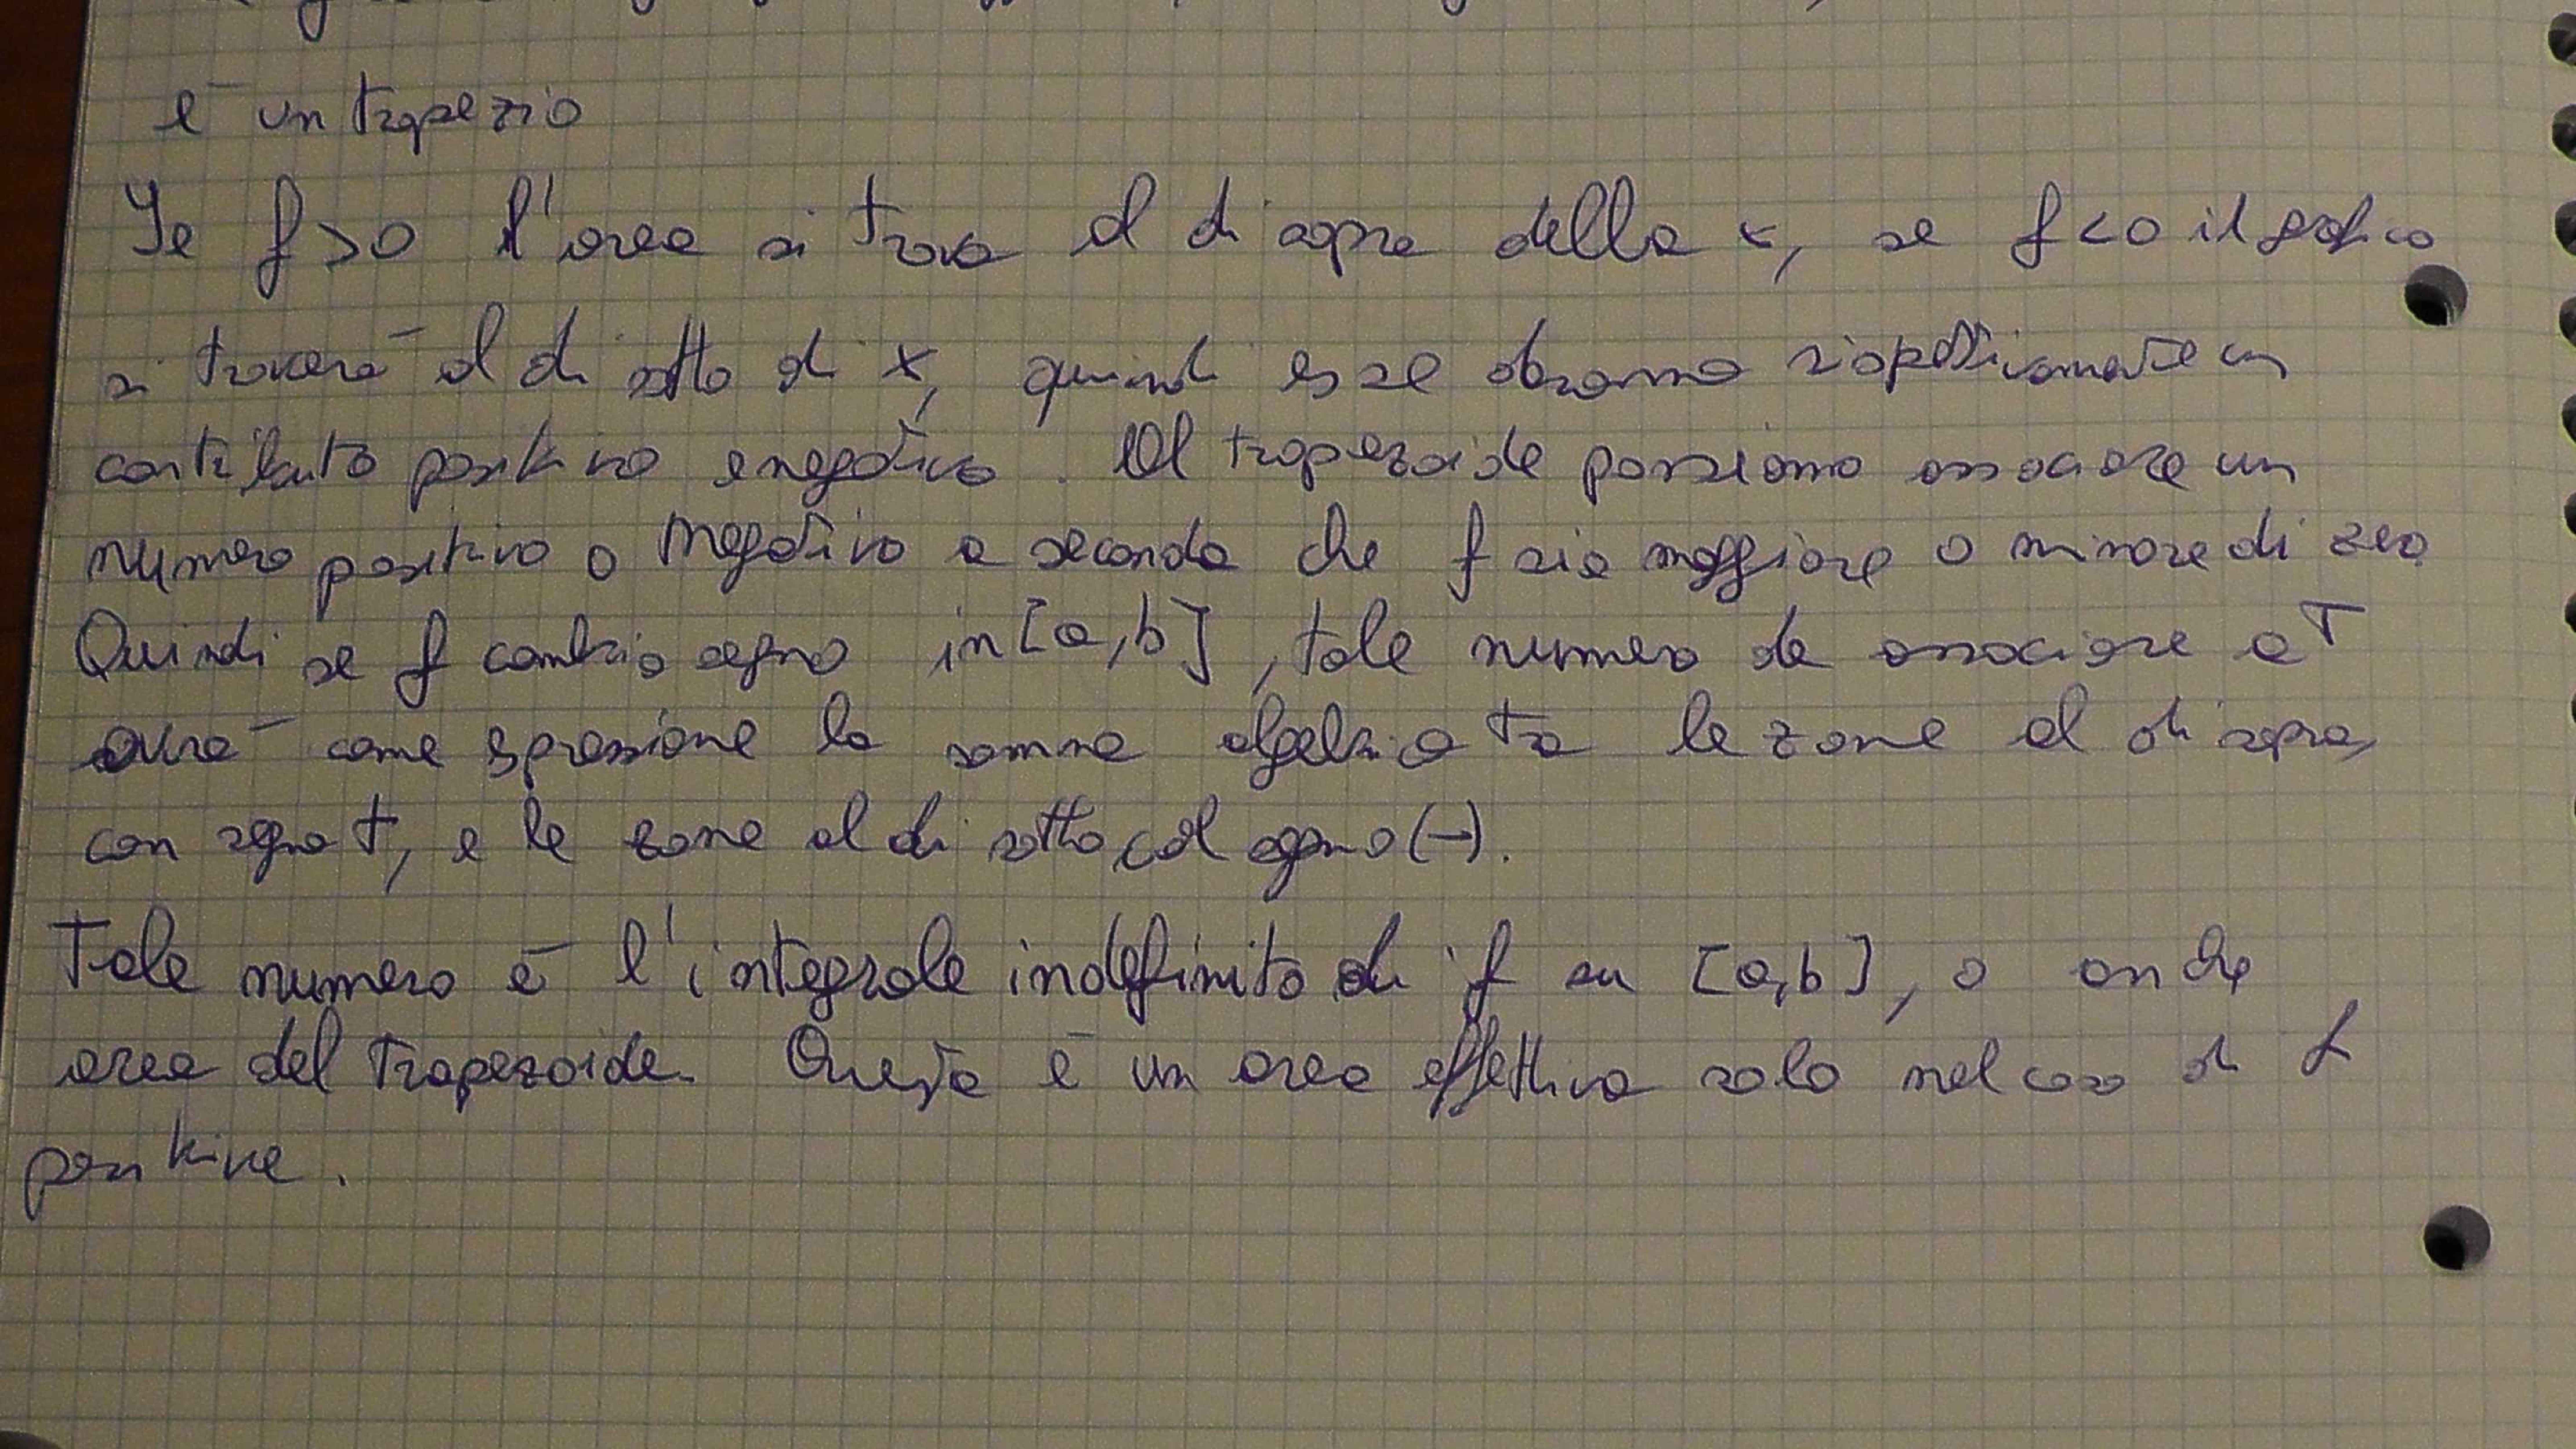 è un trapezio
Se f>0 l'area si trova al di sopra della x, se f<0 il grafico
si troverà al di sotto di x, quindi esse daranno rispettivamente un
contributo positivo e negativo. Al trapezoide possiamo associare un
numero positivo o negativo a seconda che f sia maggiore o minore di zero.
Quindi se f cambia segno in [a,b], tale numero da associare a T
avrà come espressione la somma algebrica tra le zone al di sopra,
con segno +, e le zone al di sotto col segno (-).
Tale numero è l'integrale indefinito di f su [a,b], o anche
area del trapezoide. Questa è un area effettiva solo nel caso di f
positive.